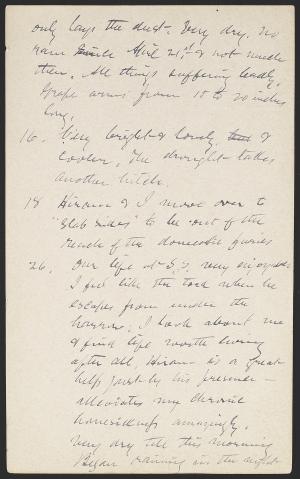 only lays the dust. Very dry. No
rain since April 21st & not much
then. All things suffering badly.
Grape arms from 15 to 20 inches
long.
16. Very bright & lovely, &
cooler. The drought takes
another hitch.
18 Hiram & I move over to
"Slab Sides" to be out of the
reach of the domestic furies
26. Our life at S.S. very enjoyable
I feel like the toad when he
escapes from under the
harrow. I look about me
& find life worth living
after all. Hiram is a great
help just by his presence —
alleviates my chronic
homesickness amazingly.
Very dry till this morning
Began raining in the night